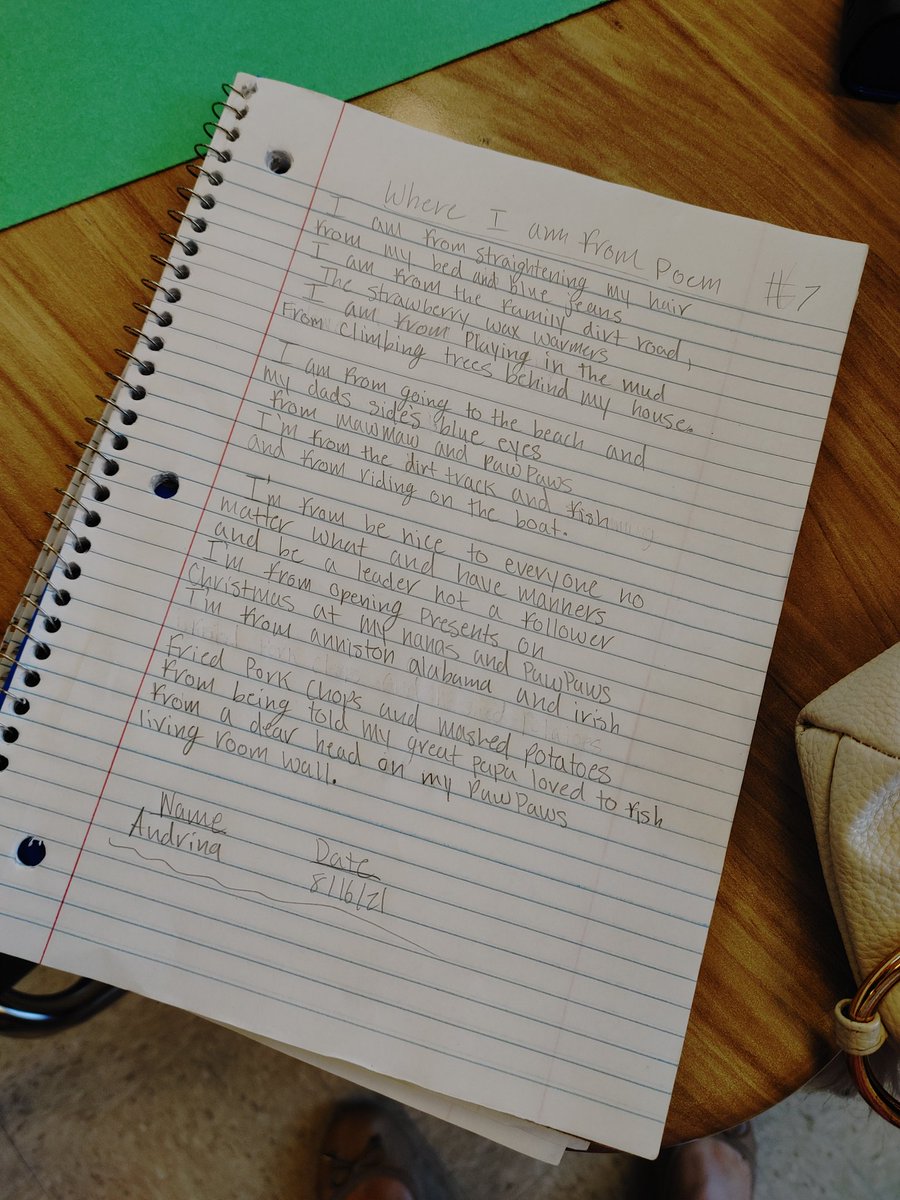 Where I am from Poem #7
I am from straightening my hair
from my bed and blue jeans
I am from the family dirt road,
The strawberry wax warmers
I am from Playing in the mud
From climbing trees behind my house.
I am from going to the beach and
my dads side's blue eyes
from mawmaw and pawPaws
I'm from the dirt track and fish
and from riding on the boat.
I'm from be nice to everyone no
matter what and have manners
and be a leader not a follower
I'm from opening Presents on
Christmas at my nanas and PawPaws
I'm from anniston alabama and irish
fried Pork Chops and mashed potatoes
from being told my great papa loved to fish
from a dear head on my PawPaws
living room wall.
Name
Andrina
Date
8/16/21